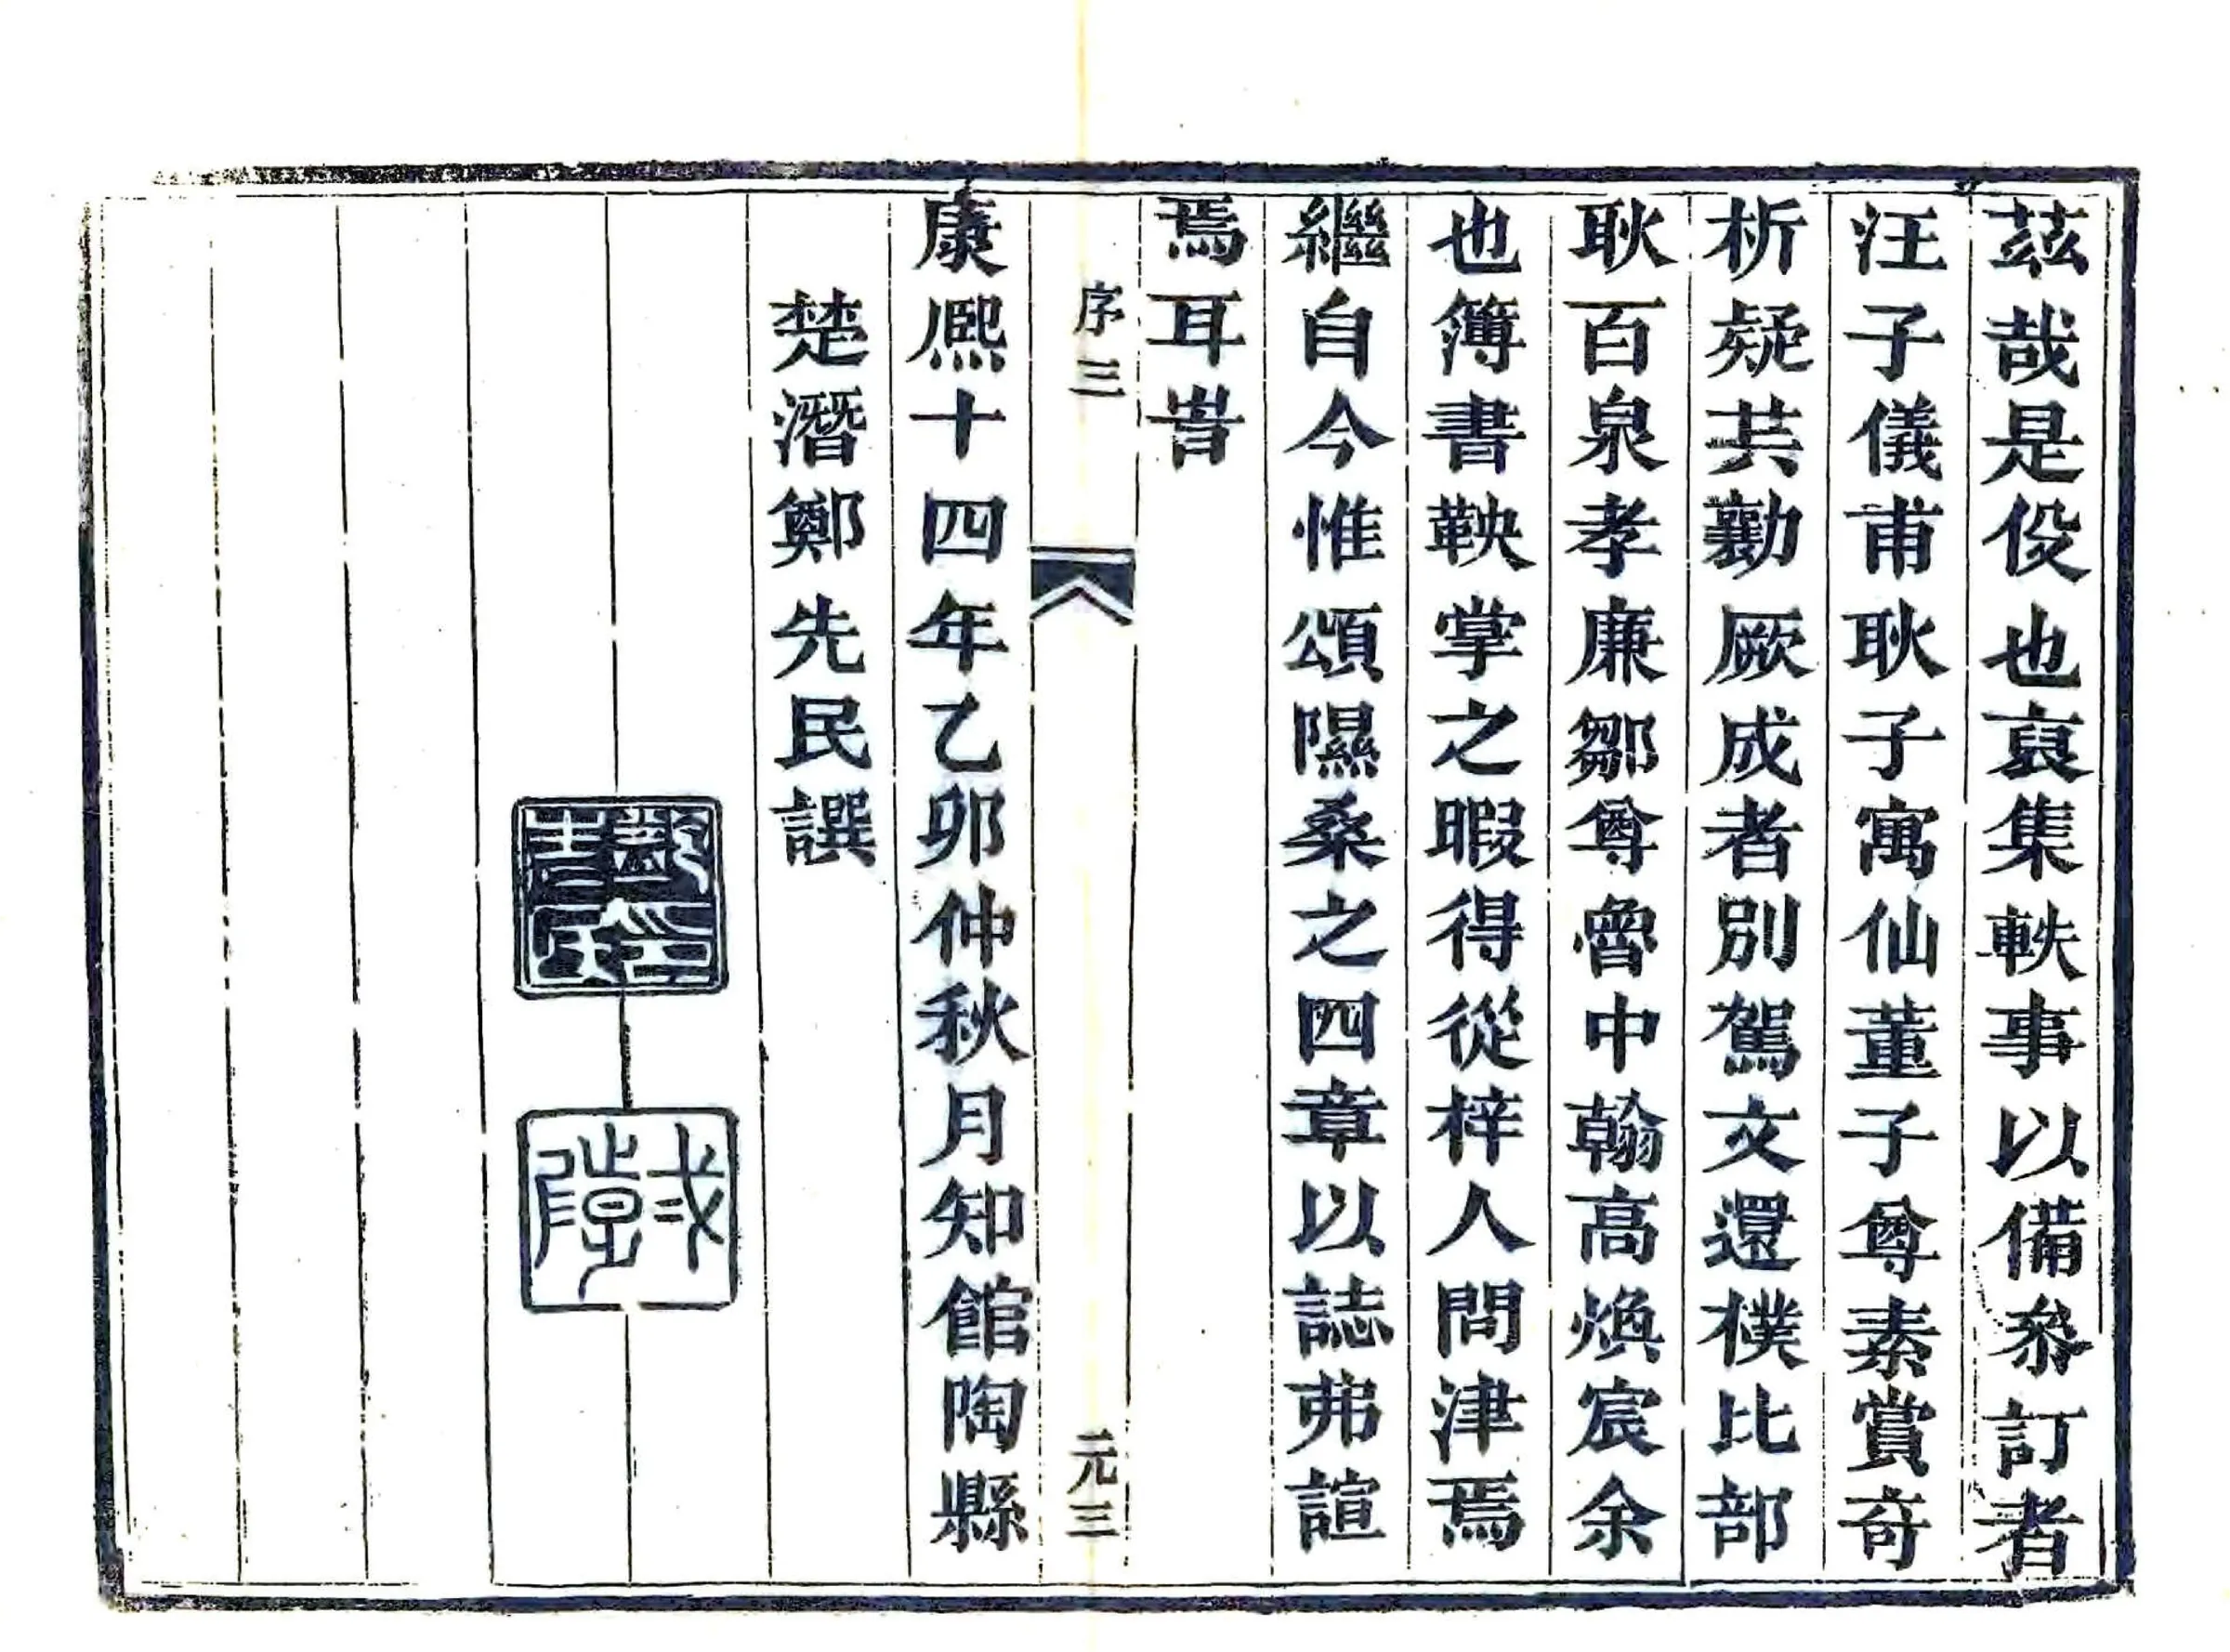 茲哉是役也裒集軼事以備叅訂者
汪子儀甫耿子寓仙董子尊素賞奇
析疑共勷厥成者別駕文還樸比部
耿百泉孝廉鄒尊魯中翰高煥宸余
也簿書鞅掌之暇得從梓人問津焉
繼自今惟頌隰桑之四章以誌弗諠
焉耳旹
序三
元三
康熙十四年乙卯仲秋月知館陶縣
楚潛鄭先民譔